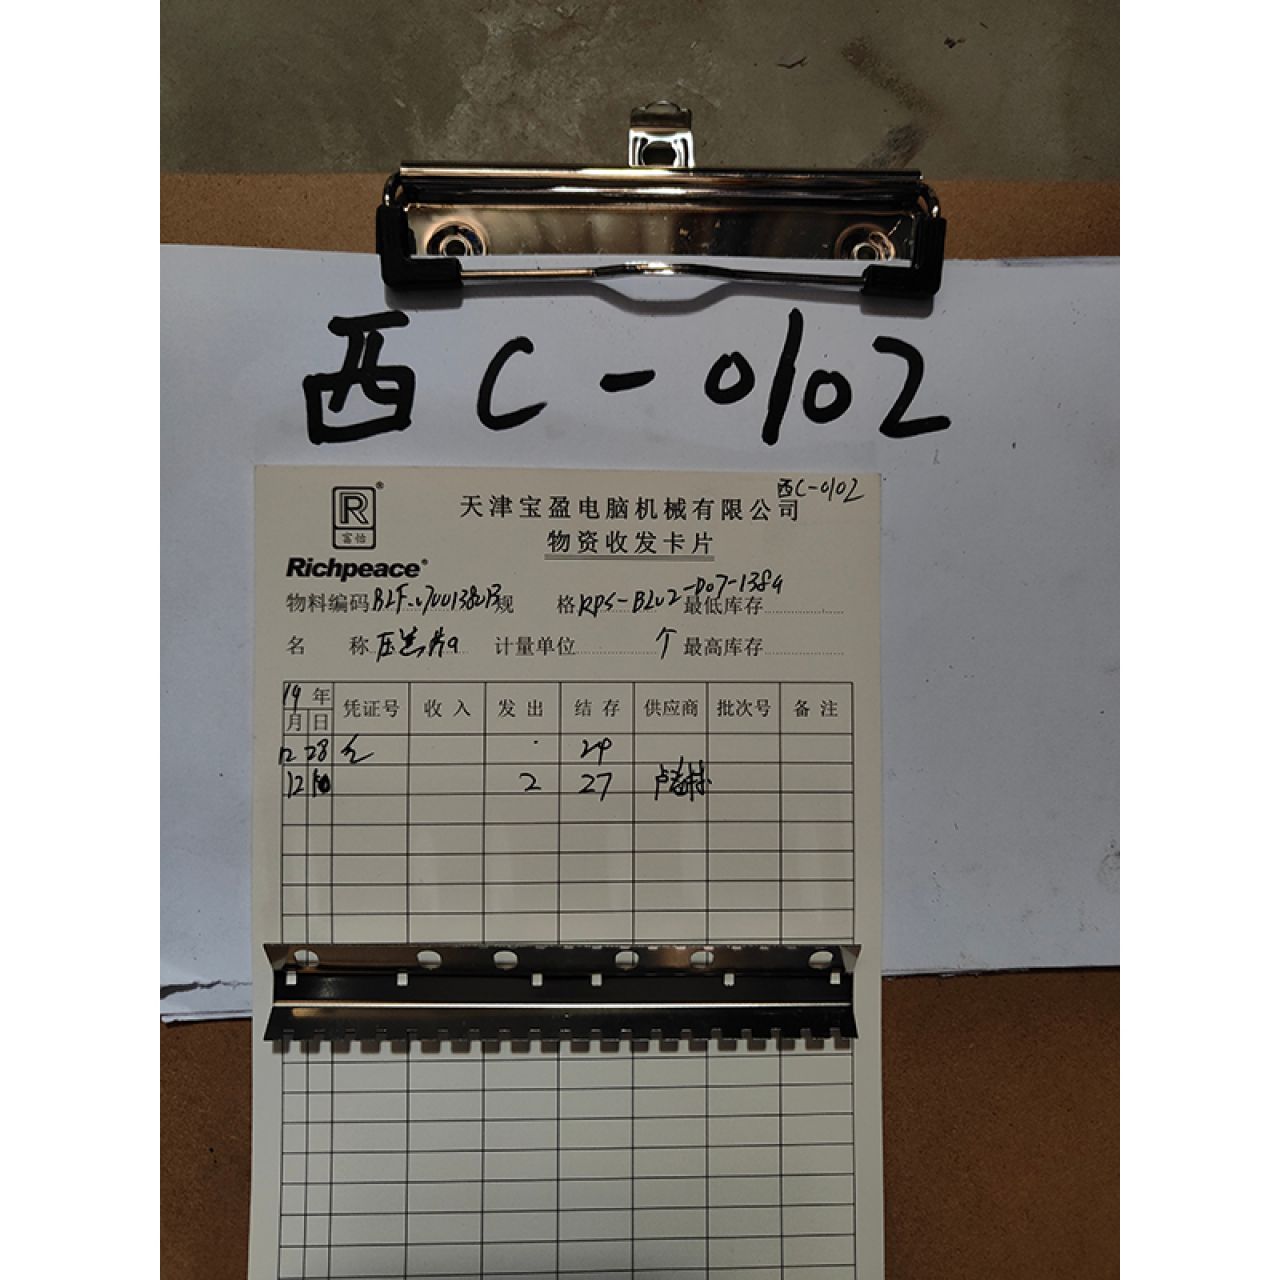 西C-0102
西C-0102
R®
富怡
Richpeace®
天津宝盈电脑机械有限公司
物资收发卡片
物料编码 规 格 RPS-BLU2-D07-1389 最低库存
名 称 计量单位 个 最高库存
19 年 凭证号 收入 发出 结存 供应商 批次号 备注
月 日
12 28 29
12 2 27